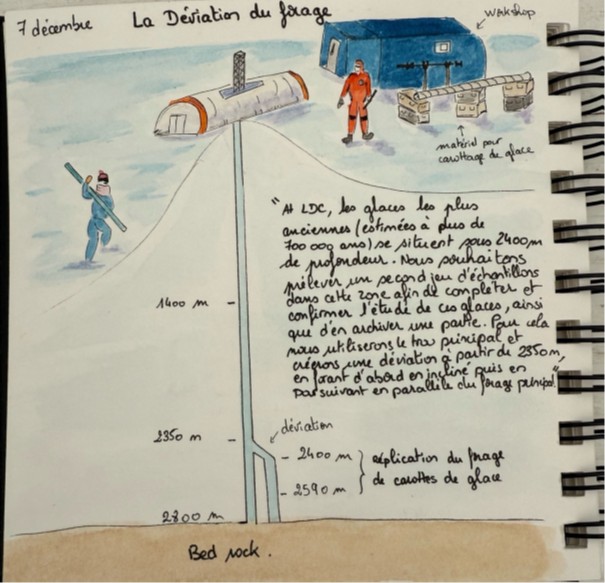 7 décembre
La Déviation du forage
Workshop
matériel pour
carottage de glace
"At LDC, les glaces les plus
anciennes (estimées à plus de
700 000 ans) se situent sous 2400m
de profondeur. Nous souhaitons
prélever un second jeu d'échantillons
dans cette zone afin de compléter et
confirmer l'étude de ces glaces, ainsi
que d'en archiver une partie. Pour cela
nous utiliserons le trou principal et
créerons une déviation à partir de 2350m,
en forant d'abord en incliné puis en
poursuivant en parallèle du forage principal"
1400 m
2350 m
déviation
2400 m
réplication du forage
de carottes de glace
2590 m
2800 m
Bed rock.